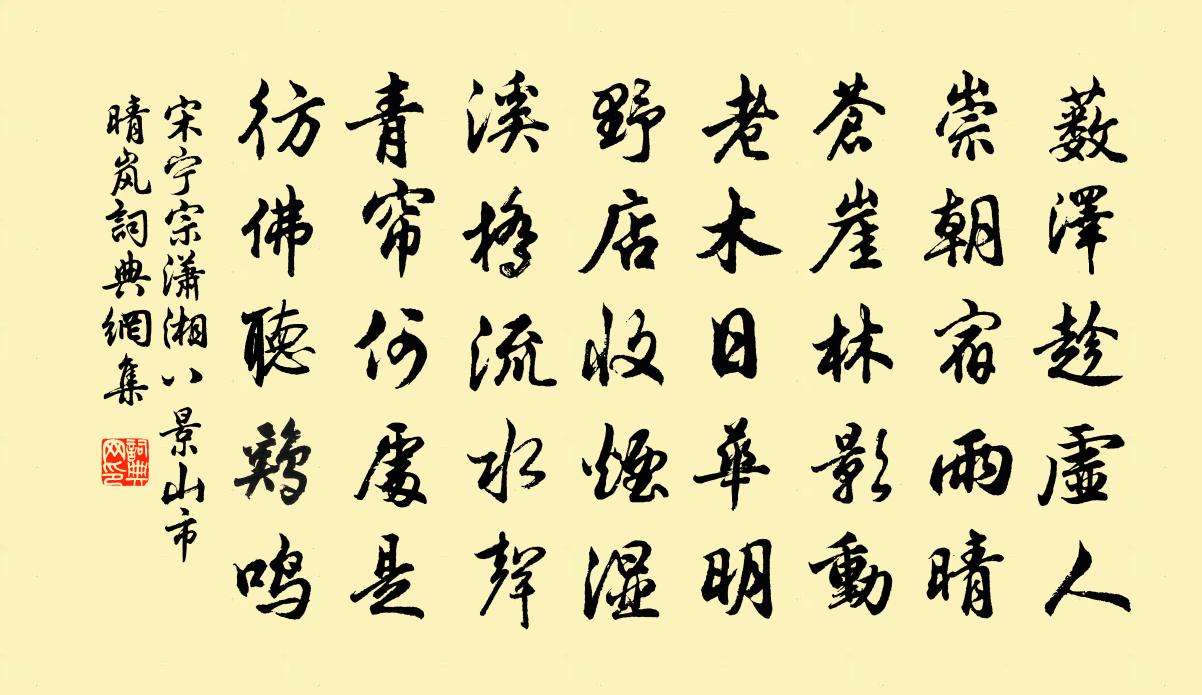 薮澤趁虛人
崇朝宿雨晴
蒼崖林影動
老木日華明
野店收煙湿
溪橋流水聲
青帘何處是
彷佛聽鷄鳴
宋宁宗瀟湘八景山市
晴岚詞典網集
詞典网印